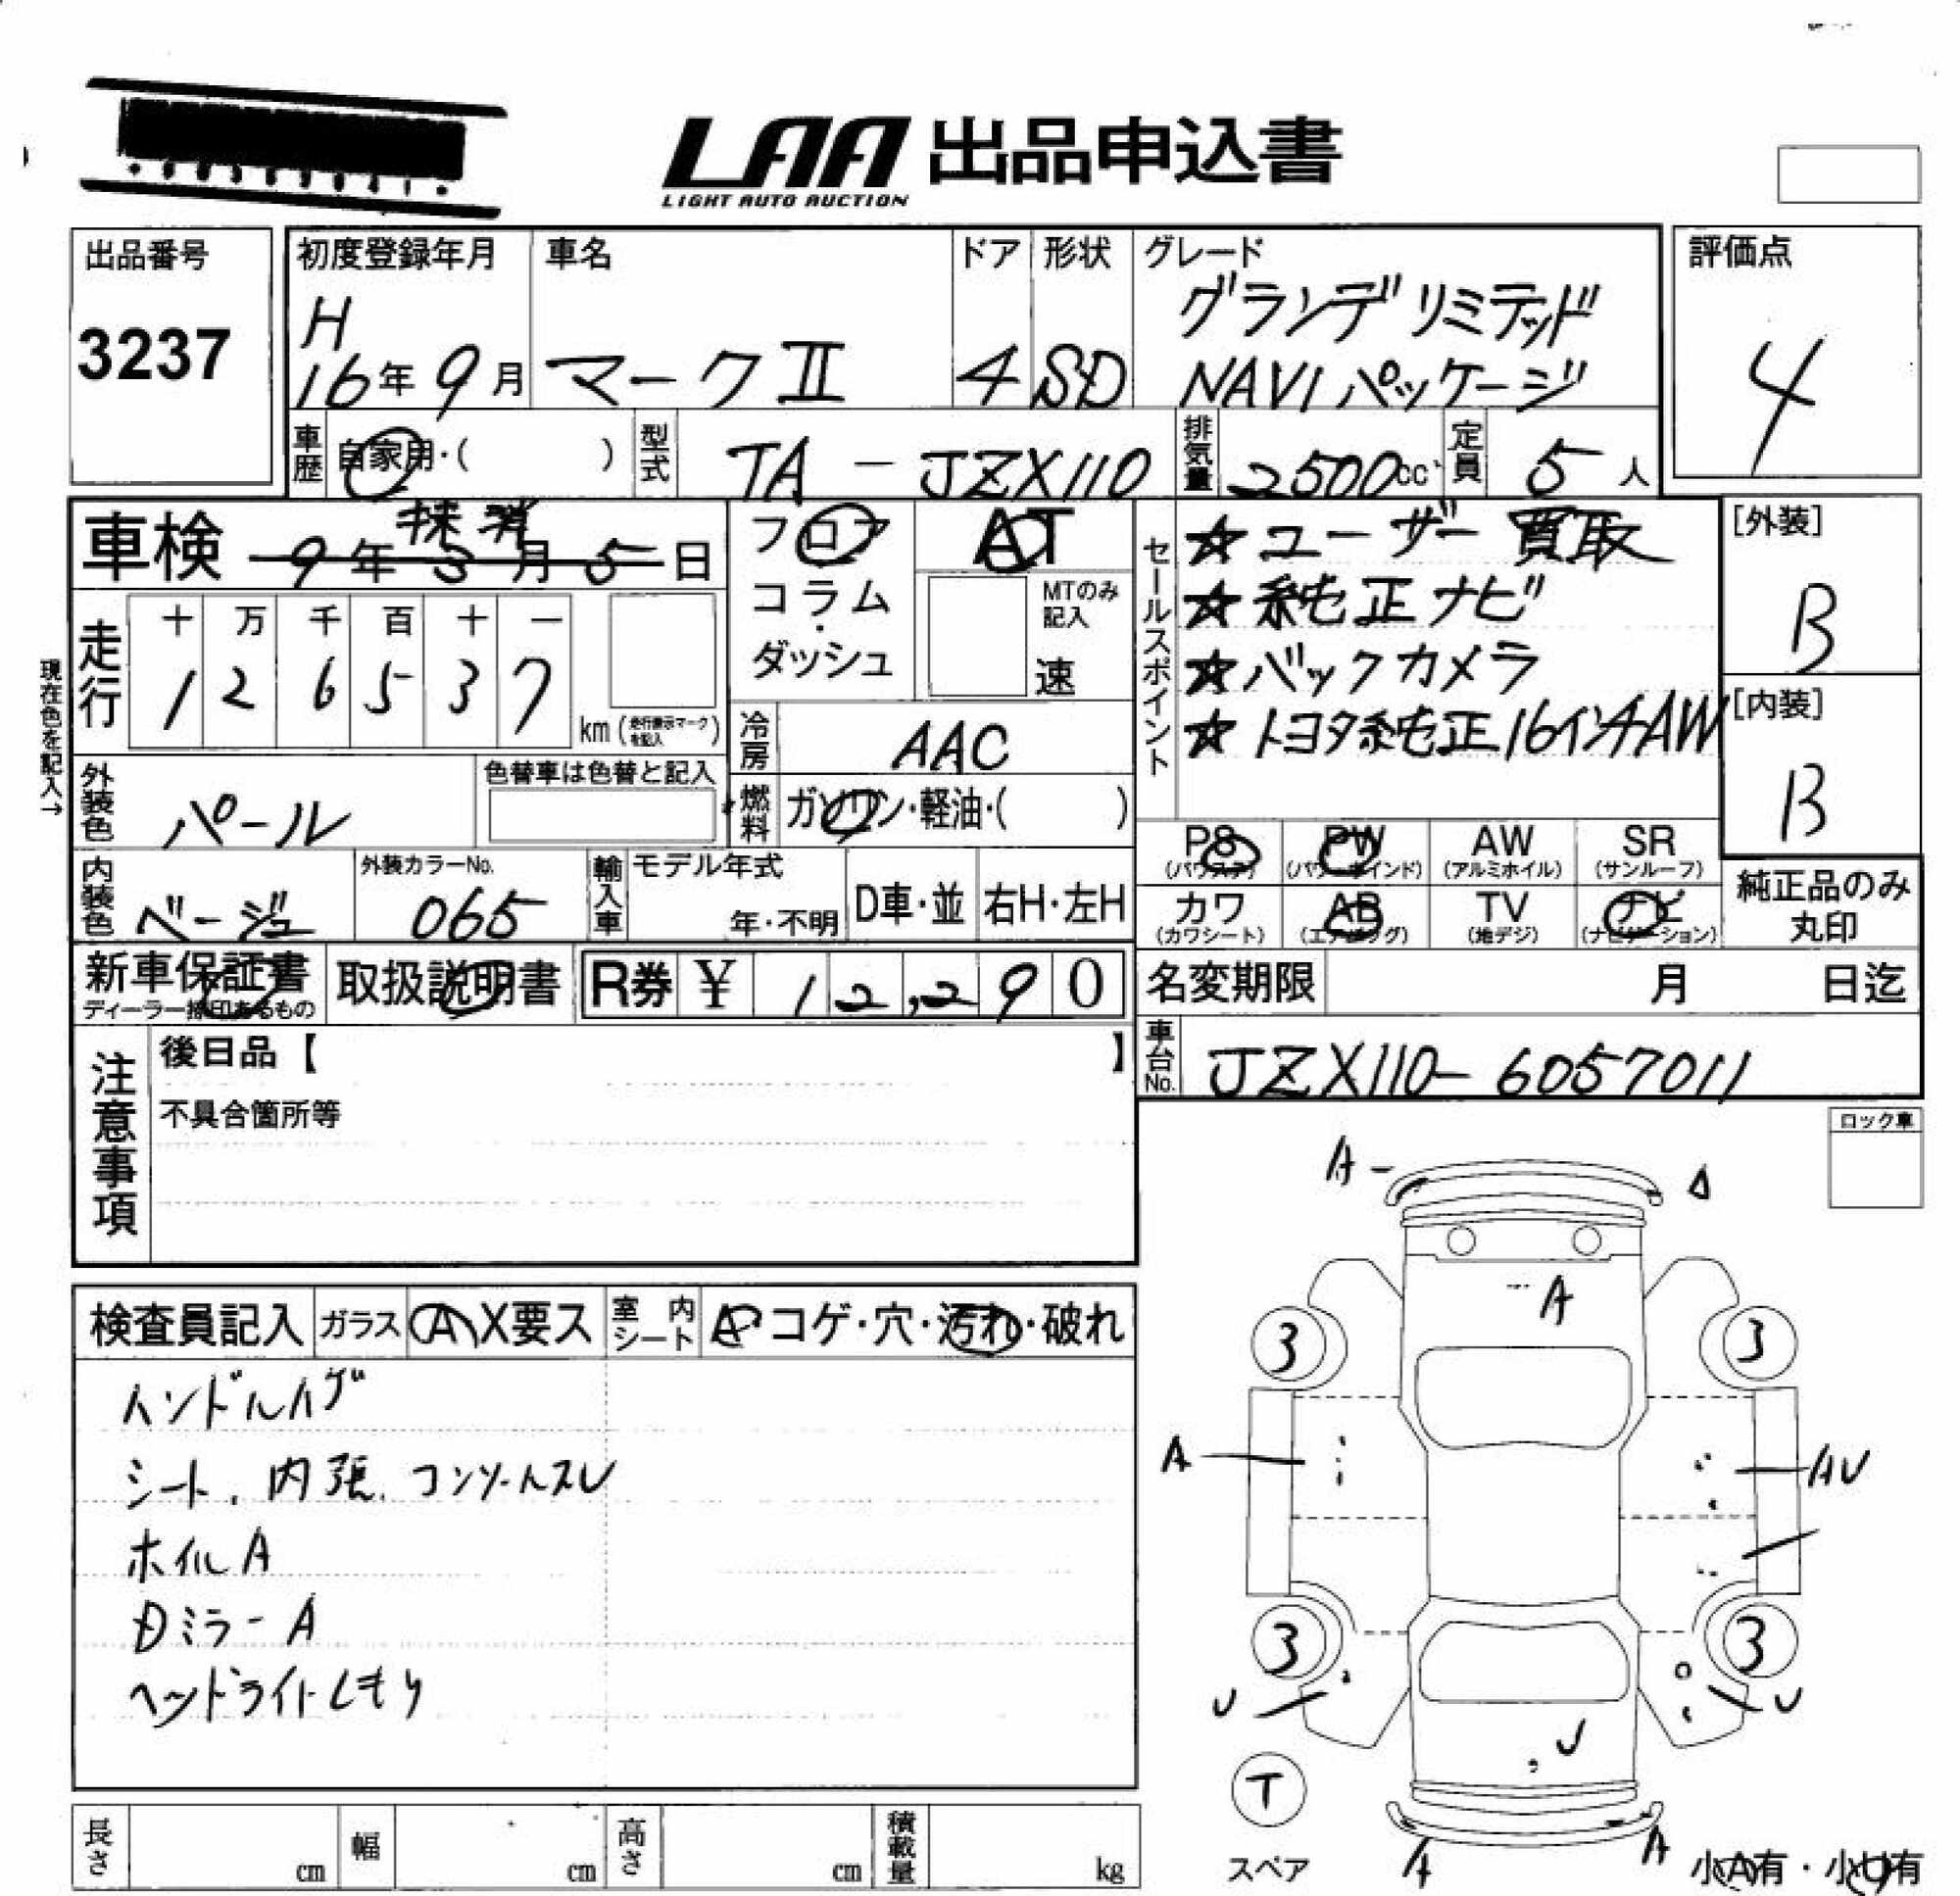 LAA 出品申込書
LIGHT AUTO AUCTION
出品番号
3237
初度登録年月
H
16年9月
車名
マークⅡ
ドア
4
形状
SD
グレード
グランデリミテッド
NAVIパッケージ
評価点
4
車歴
自家用・( )
型式
TA-JZX110
排気量
2500cc
定員
5人
車検
抹消
9年3月5日
フロア
コラム・
ダッシュ
AT
MTのみ
記入
速
セールスポイント
☆ユーザー買取
☆純正ナビ
☆バックカメラ
☆トヨタ純正16インチAW
[外装]
B
[内装]
B
現在色を記入→
走行
十 万 千 百 十 一
1 2 6 5 3 7
km(走行表示マークを記入)
冷房
AAC
外装色
パール
色替車は色替と記入
燃料
ガソリン・軽油・( )
PS
(パワステ)
PW
(パワーウインド)
AW
(アルミホイル)
SR
(サンルーフ)
カワ
(カワシート)
AB
(エアバッグ)
TV
(地デジ)
ナビ
(ナビゲーション)
純正品のみ
丸印
内装色
ベージュ
外装カラーNo.
065
輸入車
モデル年式
年・不明
D車・並
右H・左H
新車保証書
ディーラー捺印あるもの
取扱説明書
R券
¥12,290
名変期限
月 日迄
車台No.
JZX110-6057011
注意事項
後日品【 】
不具合箇所等
ロック車
検査員記入
ガラス
A X要ス
室内シート
コゲ・穴・汚れ・破れ
ハンドルハゲ
シート、内張、コンソールスレ
ホイルA
Dミラー A
ヘッドライトくもり
A
A
3
3
A
AU
3
3
U
U
U
T
スペア
A
A
小A有・小U有
長さ
cm
幅
cm
高さ
cm
積載量
kg